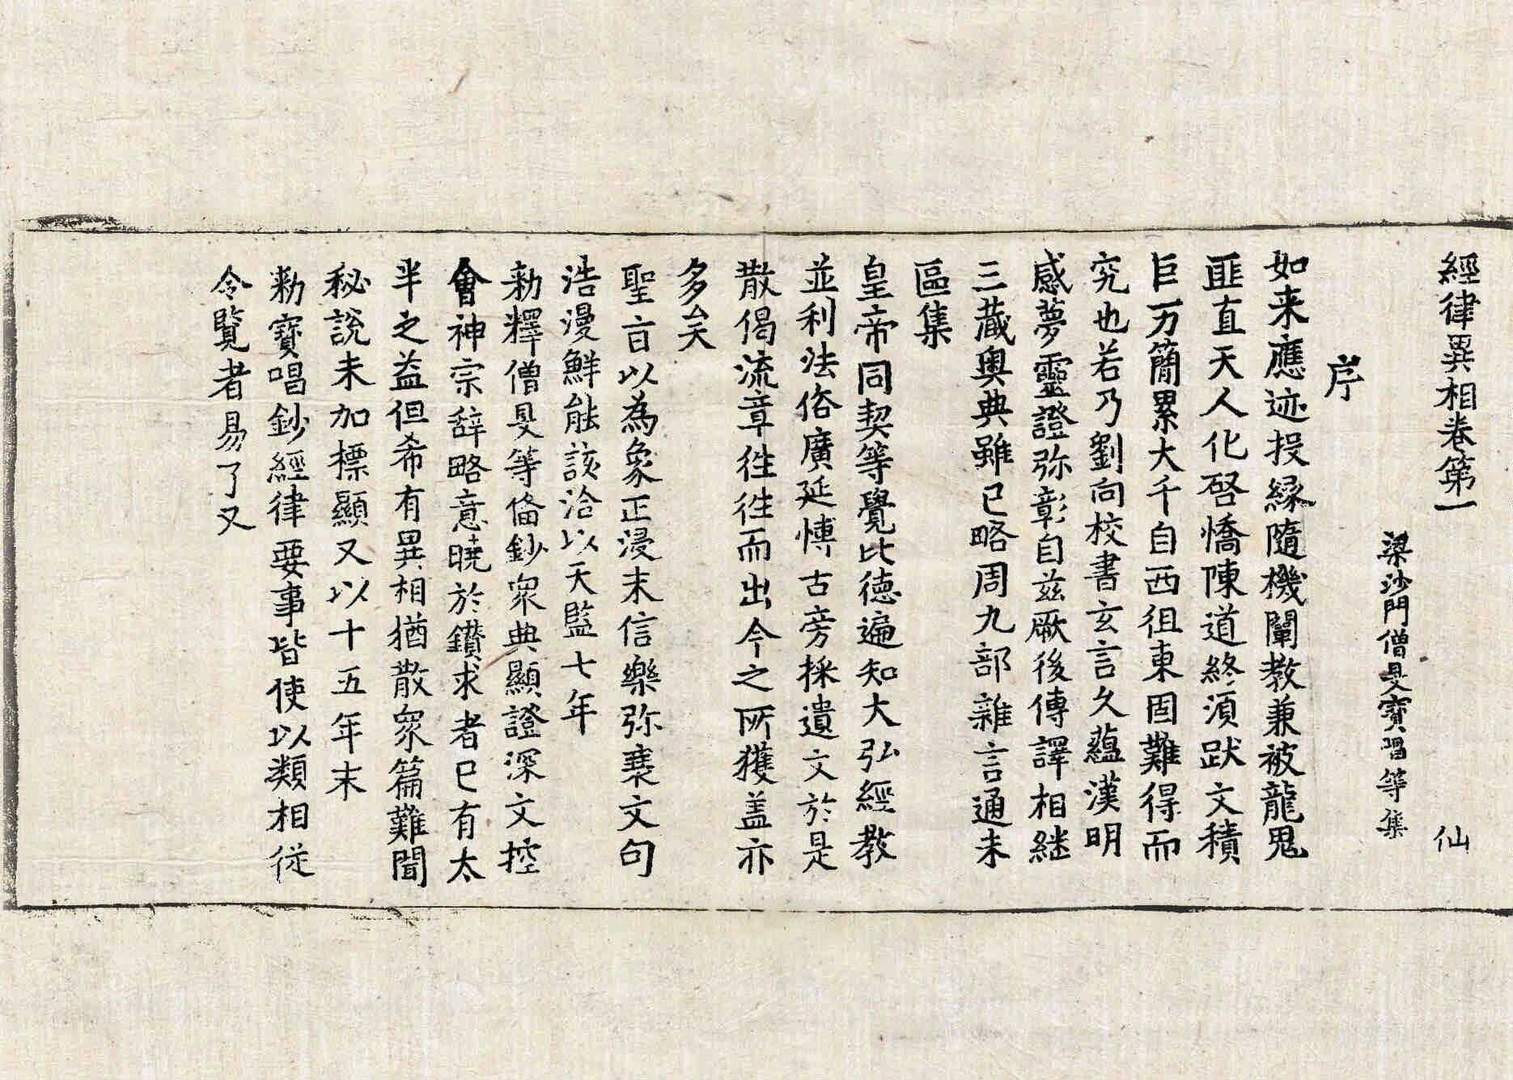 經律異相卷第一 仙
梁沙門僧旻寶唱等集
序
如来應迹投縁隨機闡教兼被龍鬼
匪直天人化啓憍陳道終湏跋文積
巨万簡累大千自西徂東固難得而
究也若乃劉向校書玄言久蘊漢明
感夢靈證弥彰自兹厥後傳譯相継
三藏奧典雖已略周九部雜言通未
區集
皇帝同契等覺比德遍知大弘經教
並利法俗廣延愽古旁採遺文於是
散偈流章徃徃而出今之所獲盖亦
多矣
聖旨以為象正浸末信樂弥衰文句
浩漫鮮能該洽以天監七年
勑釋僧旻等俻鈔衆典顯證深文控
會神宗辞略意曉於鑽求者已有太
半之益但希有異相猶散衆篇難聞
秘說未加標顯又以十五年末
勑寶唱鈔經律要事皆使以類相從
令覽者易了又